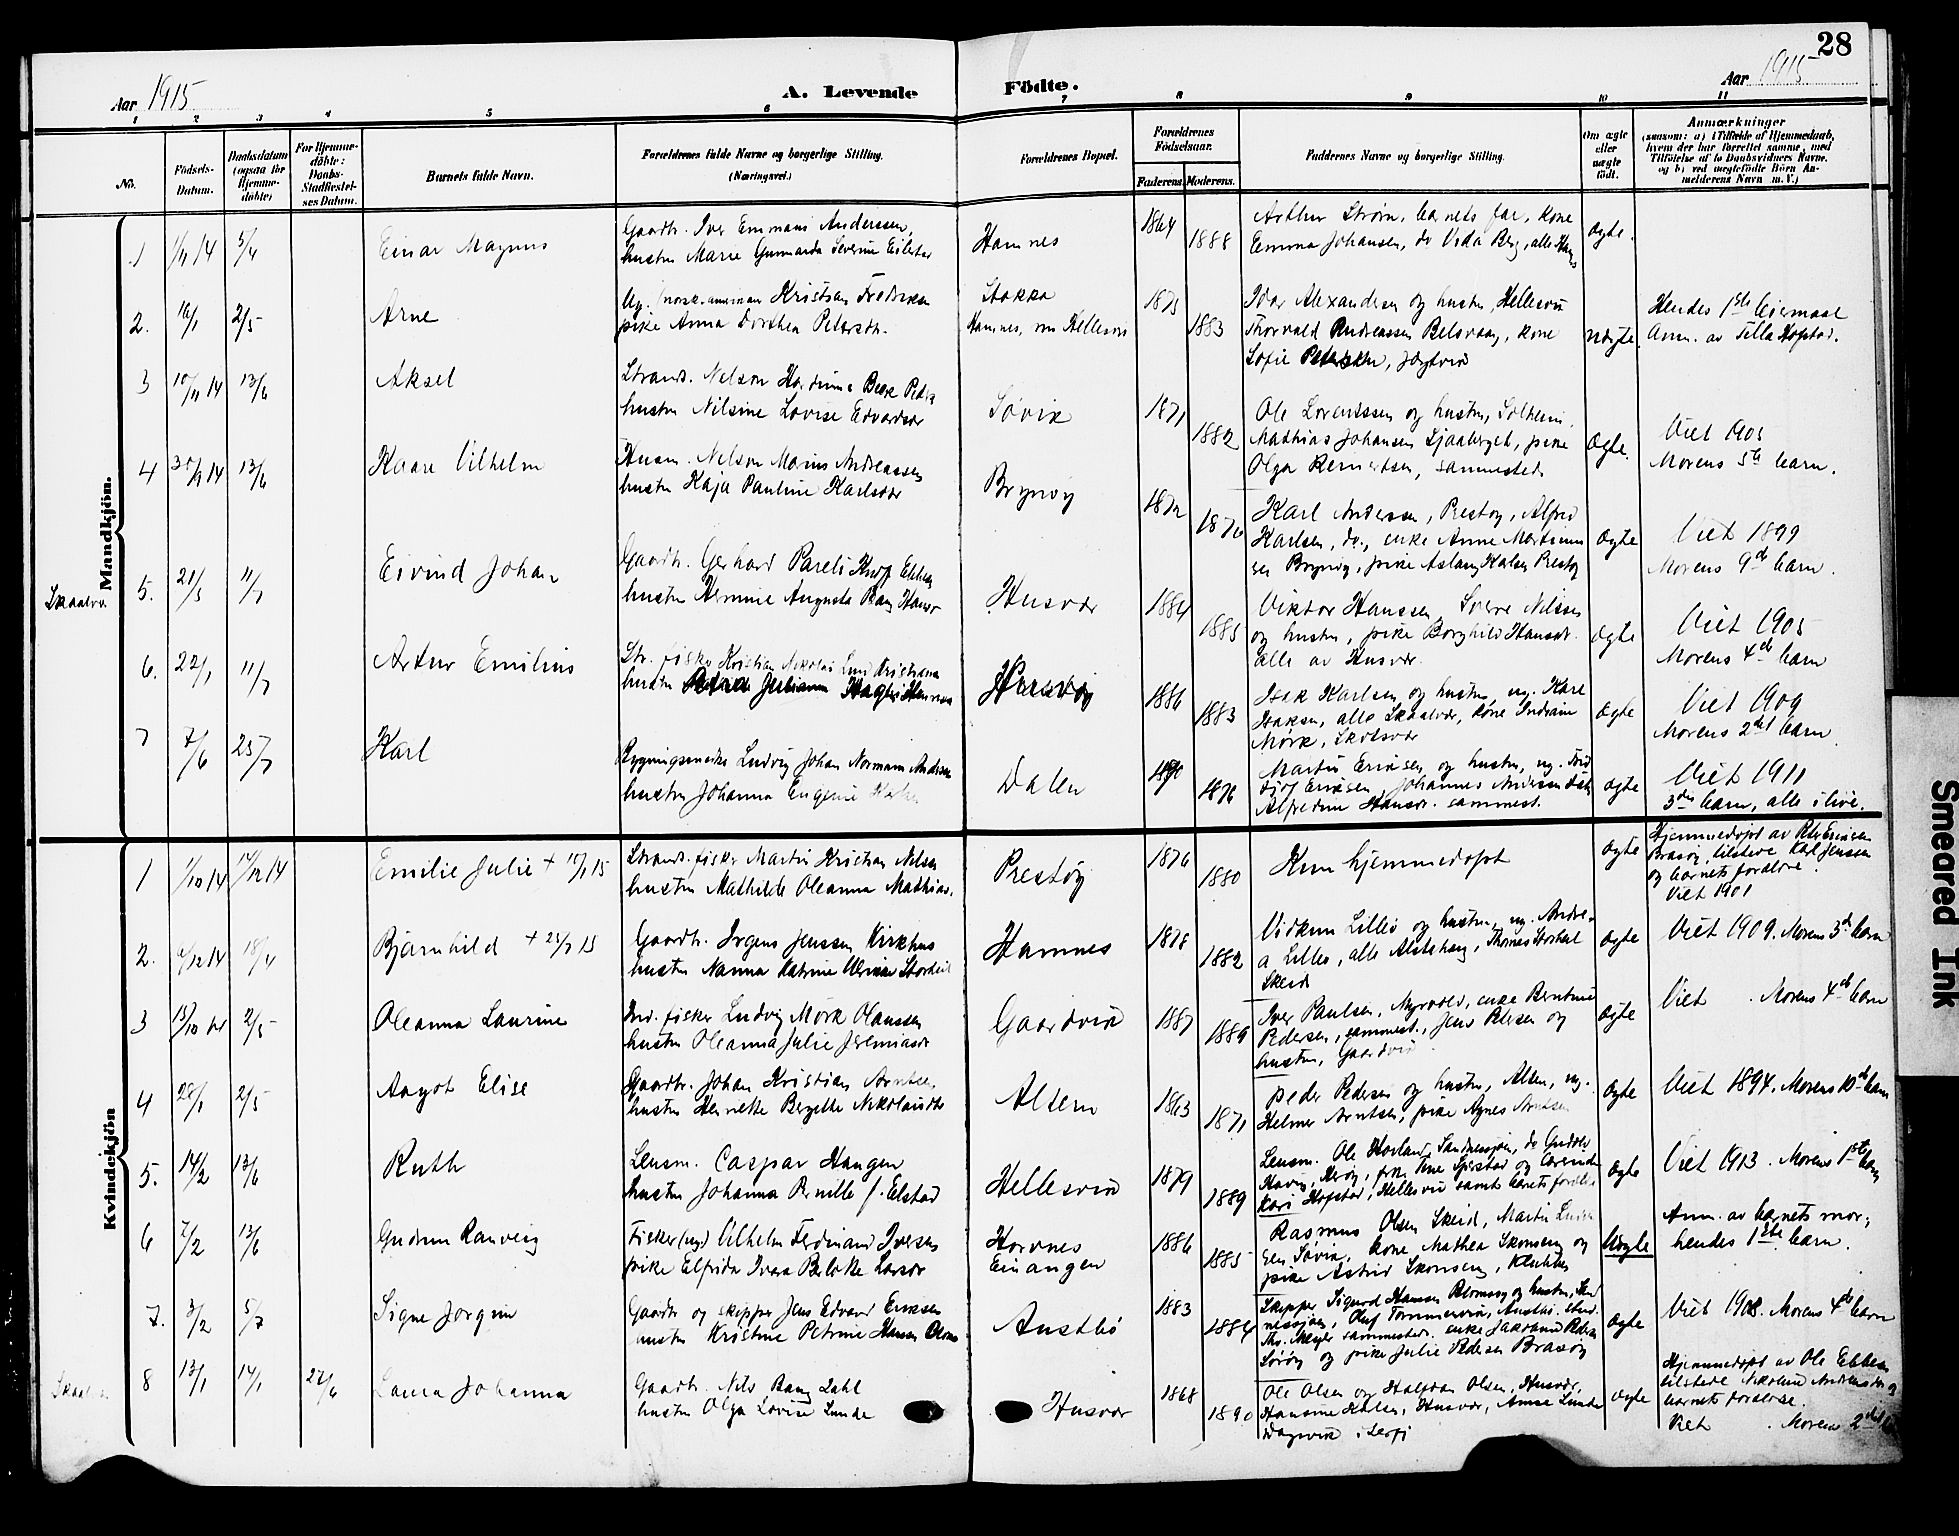 28
Aar 1915
A. Levende
Födte.
Aar 1915
1 2 3 4 5 6 7 8 9 10 11
No.
Födsels-Datum.
Daabsdatum (ogsaa for Hjemme-döbte)
For Hjemme-döbte: Daabs-Stadfæstel-ses Datum.
Barnets fulde Navn.
Forældrenes fulde Navne og borgerlige Stilling.
(Næringsvei.)
Forældrenes Bopæl.
Forældrenes Födselsaar.
Faderens. Moderens.
Faddernes Navne og borgerlige Stilling.
Om ægte eller uægte födt.
Anmærkninger
(saasom: a) i Tilfælde af Hjemmedaab,
hvem der har forrettet samme, med
Tilföielse af to Daabsvidners Navne,
og b) ved uægtefödte Börn An-
melderens Navn m. V.)
Mandkjön.
1 1/11 14 5/4 Einar Magnus
Gaardbr. Iver Emmani Anderssen,
hustru Marie Gunnarda Severine
Hamnes
1864 1888
Arthur Strøm, barnets far, kone
Emma Johansen, do Vida Berg, alle
ægte.
2. 16/1 2/5 Arne
Ug. norsk-amerikan Kristian Fredriksen
pike Anna Dorthea Petersdr.
Stokka
Hamnes, nu Hellesvik
1873 1883
Idar Alexandersen og hustru, Hellesvik
Thorvald Andreassen Belsvaag, kone
Sofie Petersen,
uægte
Hendes 1ste leiermaal
Anm. av Tilla Hofstad.
3 10/11 14 13/6 Aksel
Strands. Nelson Peder
hustru Nilsine Lovise Edvardsdr
Søvik
1871 1882
Ole Lorentssen og hustru, Solheim,
Mathias Johansen Sjaaberget, pike
Olga Reinertsen, sammesteds
ægte.
Viet 1905
Morens 5te barn.
4 13/6 Kaare Vilhelm
Husm. Nelson Marius Andreassen
hustru Kaja Pauline Karlsdr
Brynøy
1872 1876
Karl Anderssen, Prestøy, Alfred
Karlsen, do., enke Anne Martinus
sen Brynøy, pike Aslaug Karlsen Prestøy
ægte
Viet 1899
Morens 9de barn.
Skaalv.
5. 21/5 11/7 Eivind Johan
Gaardbr. Gerhard Pareli Ebbesen
hustru Hermine Augusta Bang Hansdr
Husvær
1884 1885
Viktor Hanssen, Sverre Nilssen
og hustru, pike Borghild Hansdr.
alle av Husvær.
ægte
Viet 1905
Morens 4de barn
6. 22/1 11/7 Artur Emilius
Str. fisker Kristian Nikolai Lund Kristiansen
hustru
1886 1883
Isak Karlsen og hustru, ug. Karl
Isaksen, alle Skaalvær, kone Indiane
Mørk, Skotsvær
ægte
Viet 1909
Morens 2det barn
7 7/6 25/7 Karl
Bygningssnedker Ludvig Johan Normann Andersen
hustru Johanna Eugenie
Dalen
1876
Martin Eriksen og hustru, ug.
Eriksen, Johannes Anderssen
Alfredine Hansdr. sammest.
ægte
Viet 1911
3die barn, alle i live.
Kvindekjön
1 1/10 14 14/12 14 Emilie Julie + 10/1 15
Strands. fisker Martin Kristian Nilsen
hustru Mathilde Oleanna Mathias.
Prestøy
1876 1880
Kun hjemmedøpt
ægte
Hjemmedøpt av Peter Eriksen
Brasøy, tilstede Karl Jenssen
og barnets forældre.
Viet 1901
2. 6/12 14 18/4 Bjarnhild + 25/7 15
Gaardbr. Jrgens Jenssen Kirkhus
hustru Nanna Katrine
Hamnes
1878 1882
Vidkun Lillø og hustru, ug. Andre-
a Lillø, alle Alstahaug, Thomas Storheil
Skeid
ægte
Viet 1909. Morens 3de barn
3 13/10 14 2/5 Oleanna Laurine
Ind. fisker Ludvig Mørk Olaussen
hustru Oleanna Julie Jeremiasdr
Gaardvik
1887 1889
Iver Paulsen, Myrvold, enke Berntine
Pedersen, sammest., Jens Petersen og
hustru, Gaardvik
ægte
Viet . Morens 4de barn
4 28/1 2/5 Aagot Elise
Gaardbr. Johan Kristian Arntsen
hustru Henrikke Bergitte Nikolaisdtr
Alsten
1863 1871
Peder Pedersen og hustru, Alsten, ug.
Helmer Arntsen, pike Agnes Arntsen
ægte
Viet 1894. Morens 10de barn
5. 14/2 13/6 Ruth
Lensm. Caspar Haugen
hustru Johanna Pernille f. Elstad
Hellesvik
1879 1889
Lensm. Ole Hovland, Sandnessjøen, do
Havig, Herøy, frk. og
Kari Hofstad, Hellesvik samt barnets forældre
ægte
Viet 1913. Morens 1ste barn
6 7/2 13/6 Gudrun Ranveig
Fisker (ug.) Vilhelm Ferdinand Iversen
pike Elfrida Ivara Larsdr
Horvnes
Einangen
1886 1885
Rasmus Olsen Skeid, Martin
sen Søvik, kone Mathea Skonseng og
pike Astrid Skonseng,
Uægte
Anm. av barnets mor,
hendes 1ste barn.
7. 3/2 5/7 Signe Jørgine
Gaardbr og skipper Jens Edvard Eriksen
hustru Kristine Petrine Hansen
Austbø
1883 1884
Skipper Sigurd Hansen og hustru, Sand
nessjøen, Oluf Tommervik, Austbø, stud.
Th. Meyer sammesteds. enke Jakobine Peders
Sørøy og pike Julie Pedersen Brasøy
ægte
Viet 1908. Morens 4de barn
8 13/1 14/1 27/6 Laura Johanna
Gaardb. Nils Bang Dahl
hustru Olga Lovise Lunde
Husvær
1868 1890
Ole Olsen og Halfdan Olsen, Husvær,
Hansine Karlsen, Husvær, Anna Lunde
ægte
Hjemmedøpt av Ole Ebbesen
tilstede Nikoline Andersen og
barnets forældre.
Viet . Morens 2det
Smeared Ink